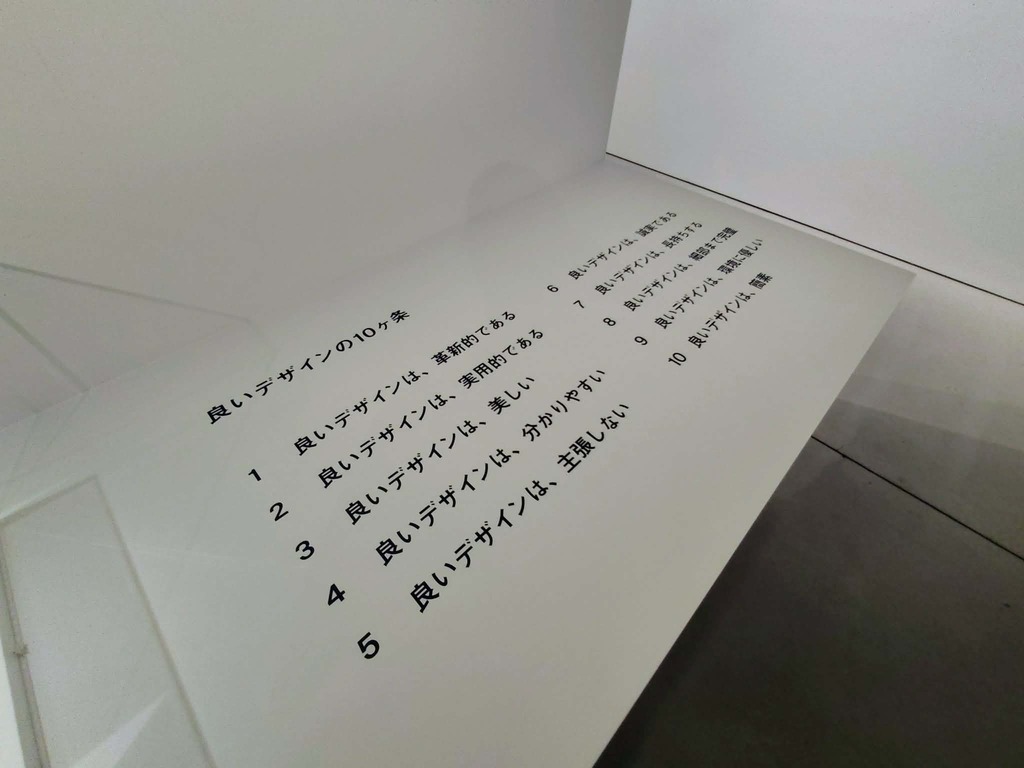 良いデザインの10ヶ条
1 良いデザインは、革新的である
2 良いデザインは、実用的である
3 良いデザインは、美しい
4 良いデザインは、分かりやすい
5 良いデザインは、主張しない
6 良いデザインは、誠実である
7 良いデザインは、長持ちする
8 良いデザインは、細部まで完璧
9 良いデザインは、環境に優しい
10 良いデザインは、簡素